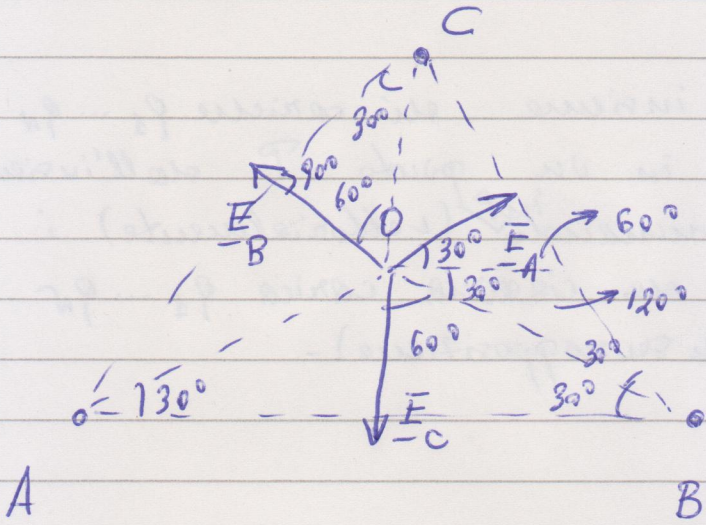 C
30°
90°
60°
O
E
B
30°
E
A
60°
30°
120°
60°
30°
30°
30°
E
C
A
B